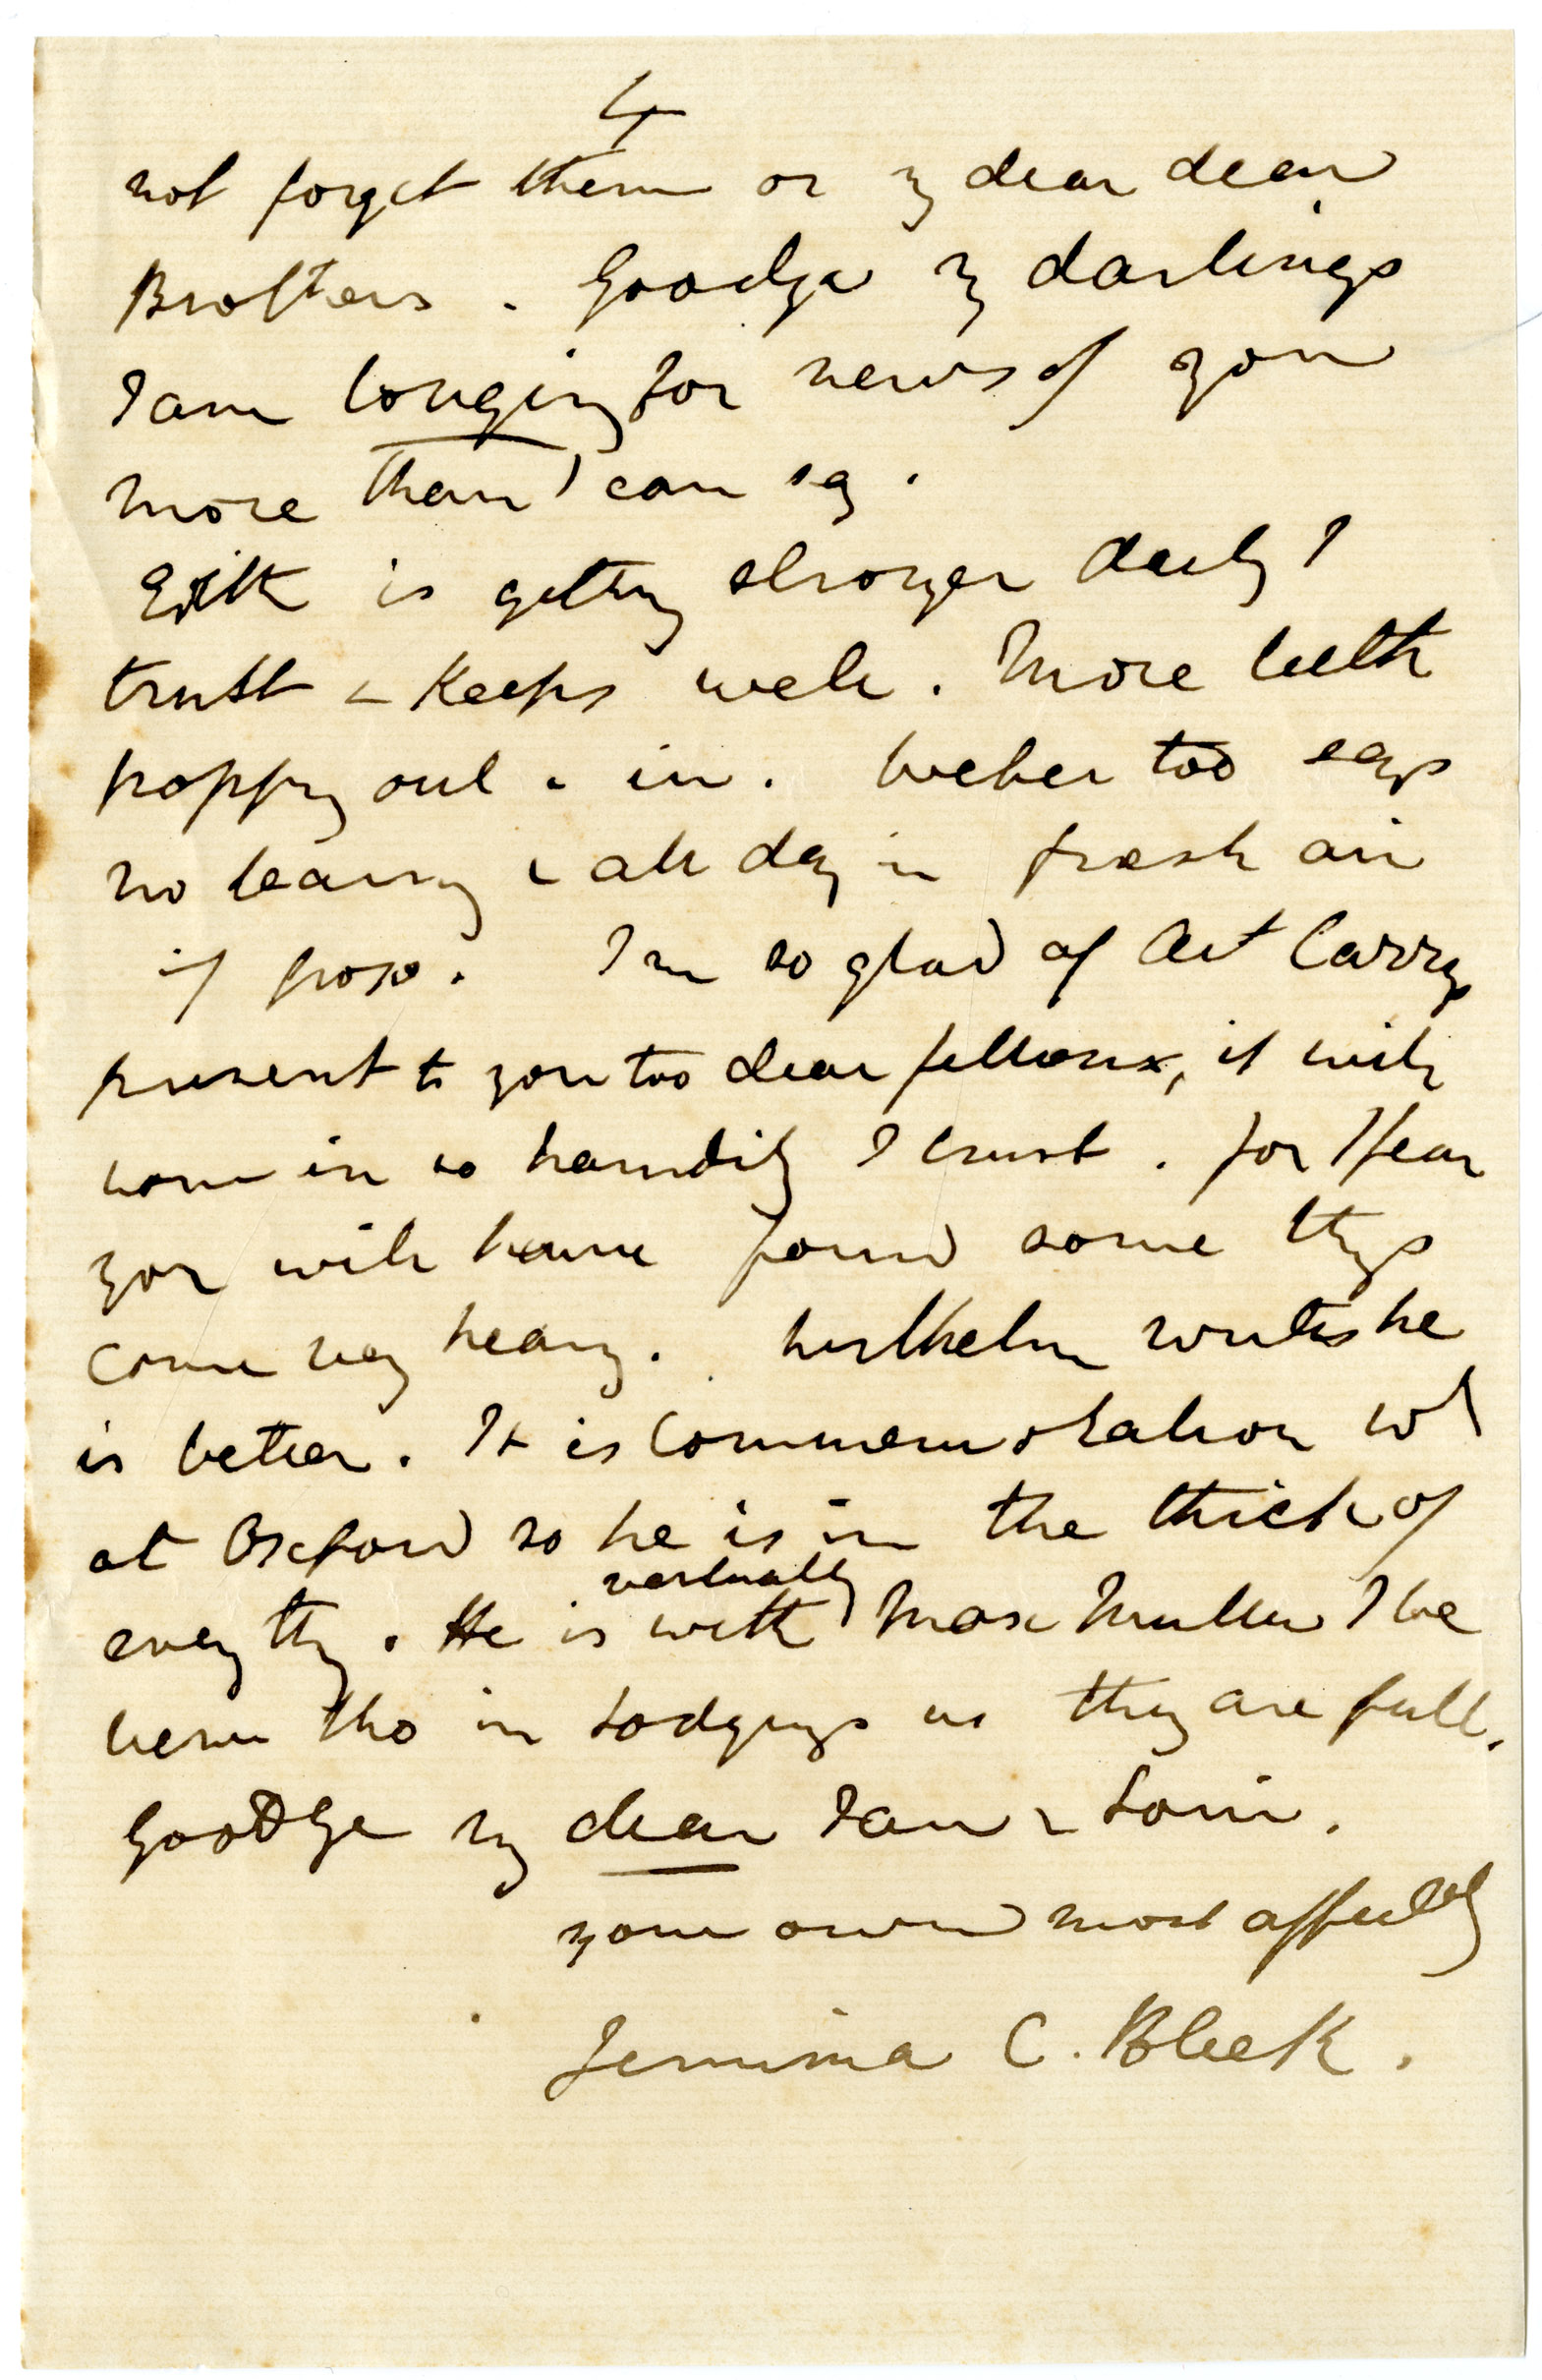 4
not forget them or my dear dear
Brothers. Goodbye my darlings
I am longing for news of you
more than I can say.
Edith is getting stronger daily I
trust & keeps well. More teeth
popping out & in. Weber too says
no learning & all day in fresh air
if poss. I am so glad of Aet Carrys
present to you too dear fellows, it will
come in so handily I trust. for I fear
you will have found some things
come very heavy. Wilhelm writes he
is better. It is Commemoration wk
at Oxford so he is in the thick of
every thg. He is virtually with Max Muller I be
lieve tho in lodgings as they are full.
Goodbye my dear Ian & Loui.
your own most affectly
Jemima C. Bleek.